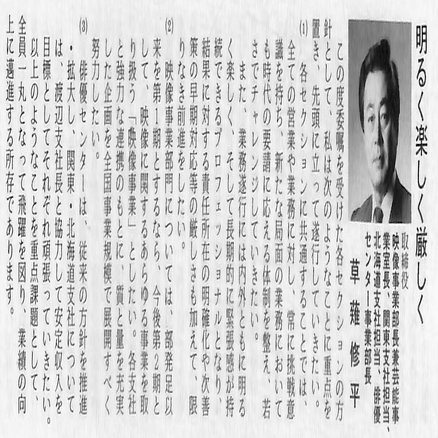 明るく楽しく厳しく
取締役
映像事業部長兼芸能事
業室長、関東支社担当、
北海道支社担当、俳優
センター事業部長
草薙修平
この度委嘱を受けた各セクションの方
針として、私は次のようなことに重点を
置き、先頭に立って遂行していきたい。
(1) 各セクションに共通することでは、
全ての営業や業務に対し、常に挑戦意
識を持ち、新たなる局面の業務において
も時代の要請に応える体制を整え、若
さでチャレンジしていきたい。
また、業務遂行には内外ともに明る
く楽しく、そして長期的に緊張感が持
続できるプロフェッショナルとなり、
結果に対する責任所在の明確化や次善
策の早期対応等の厳しさも加えて、限
りなき前進をしたい。
(2) 映像事業部門については、部発足以
来を第1期とするなら、今後第2期と
して、映像に関するあらゆる事業を取
り扱う「映像事業」としたい。各支社
と強力な連携のもとに、質と量を充実
した企画を全国事業規模で展開すべく
努力したい。
(3) 俳優センターは、従来の方針を推進
・拡大、関東・北海道支社について
は、渡辺支社長と協力して安定収入を
目標としてそれぞれ頑張っていきたい。
以上のようなことを重点課題として、
全員一丸となって飛躍を図り、業績の向
上に邁進する所存であります。